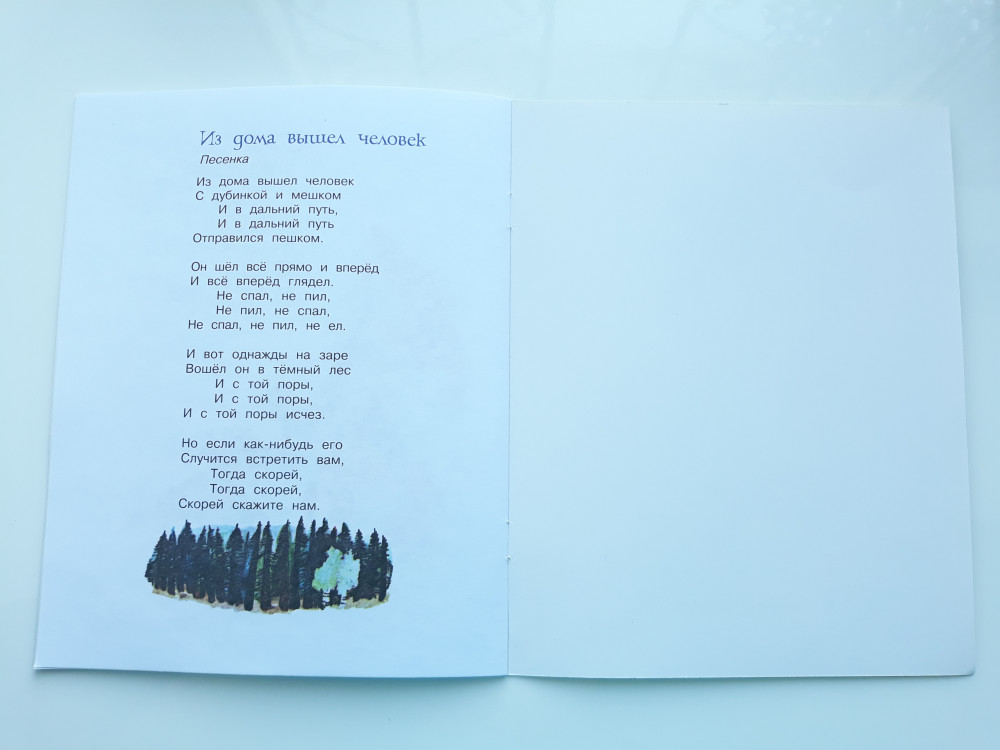 Из дома вышел человек
Песенка
Из дома вышел человек
С дубинкой и мешком
И в дальний путь,
И в дальний путь
Отправился пешком.
Он шёл всё прямо и вперёд
И всё вперёд глядел.
Не спал, не пил,
Не пил, не спал,
Не спал, не пил, не ел.
И вот однажды на заре
Вошёл он в тёмный лес
И с той поры,
И с той поры,
И с той поры исчез.
Но если как-нибудь его
Случится встретить вам,
Тогда скорей,
Тогда скорей,
Скорей скажите нам.